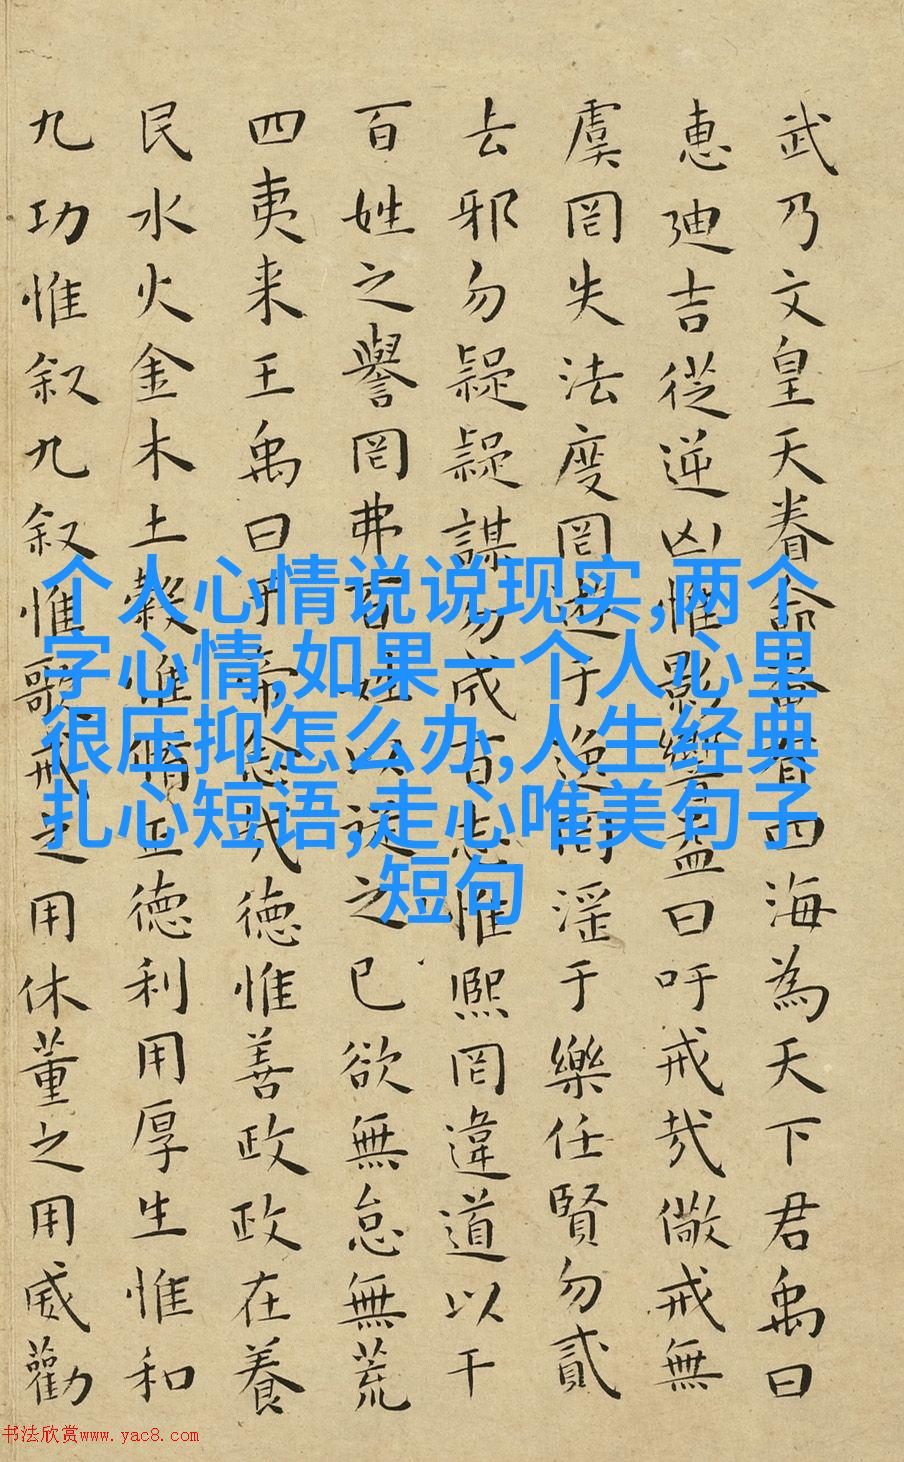 武乃文皇天眷命奄有四海為天下君禹曰
惠迪吉從逆凶惟影響益曰吁戒哉儆戒無
虞罔失法度罔遊于逸罔淫于樂任賢勿貳
去邪勿疑疑謀勿成百志惟熙罔違道以干
百姓之譽罔弗百姓以從之已欲無怠無荒
四夷来王禹曰於帝念哉德惟善政政在養
民水火金木土穀惟脩正德利用厚生惟和
九功惟叙九叙惟歌戒之用休董之用威勸
个人心情说说现实,两个
字心情,如果一个人心里
很压抑怎么办,人生经典
扎心短语,走心唯美句子
短句
书法欣赏www.yac8.com